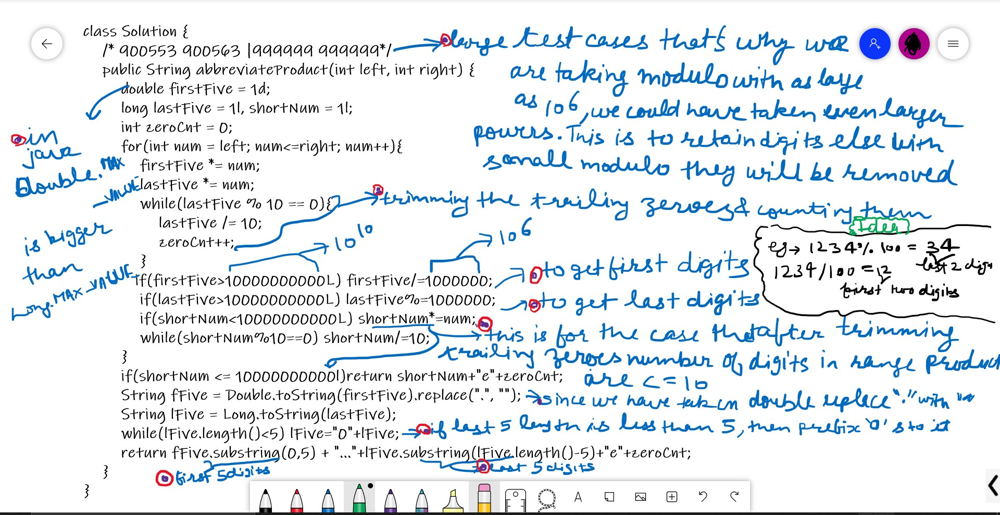 class Solution {
/* 900553 900563 |999999 999999*/
large test cases that's why we
public String abbreviateProduct(int left, int right) {
are taking modulo with as large
double firstFive = 1d;
as 10^6, we could have taken even larger
long lastFive = 1l, shortNum = 1l;
powers. This is to retain digits else with
int zeroCnt = 0;
small modulo they will be removed
for(int num = left; num<=right; num++){
in
java
Double.MAX
_VALUE
is bigger
than
Long.MAX_VALUE
firstFive *= num;
lastFive *= num;
while(lastFive % 10 == 0){
trimming the trailing zeroes & counting them
lastFive /= 10;
zeroCnt++;
}
10^10
10^6
Idea
eg → 1234%100 = 34
last 2 digits
1234/100 = 12
first two digits
if(firstFive>10000000000L) firstFive/=1000000;
to get first digits
if(lastFive>10000000000L) lastFive%=1000000;
to get last digits
if(shortNum<10000000000L) shortNum*=num;
this is for the case that after trimming
while(shortNum%10==0) shortNum/=10;
trailing zeroes number of digits in range product
}
are <= 10
if(shortNum <= 10000000000l)return shortNum+"e"+zeroCnt;
String fFive = Double.toString(firstFive).replace(".", "");
since we have taken double replace "." with ""
String lFive = Long.toString(lastFive);
while(lFive.length()<5) lFive="0"+lFive;
if last 5 length is less than 5, then prefix '0's to it
return fFive.substring(0,5) + "..."+lFive.substring(lFive.length()-5)+"e"+zeroCnt;
first 5 digits
last 5 digits
}
}
A